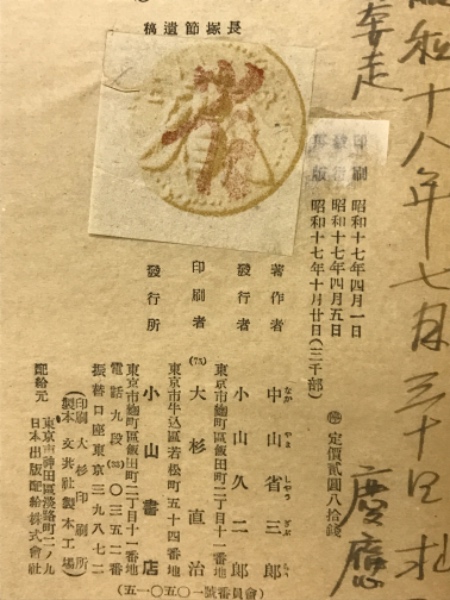 昭和十八年七月三十日
奔走
慶應
長塚節遺稿
印刷 昭和十七年四月一日
發行 昭和十七年四月五日
再版 昭和十七年十月廿日(三千部)
㊞ 定價貳圓八拾錢
著作者 中山省三郎
なか やま しやう ざぶ らう
東京市麴町區飯田町二丁目十一番地
發行者 小山久二郎
東京市牛込區若松町五十四番地
印刷者 (73) 大杉直治
東京市麴町區飯田町二丁目十一番地
發行所 小山書店
電話九段(33)〇三五二番
振替口座東京三九八七二
(印刷 大杉印刷所)
(製本 文共社製本工場)
東京市神田區淡路町二ノ九
配給元 日本出版配給株式會社
(會員番號一〇五〇一五)